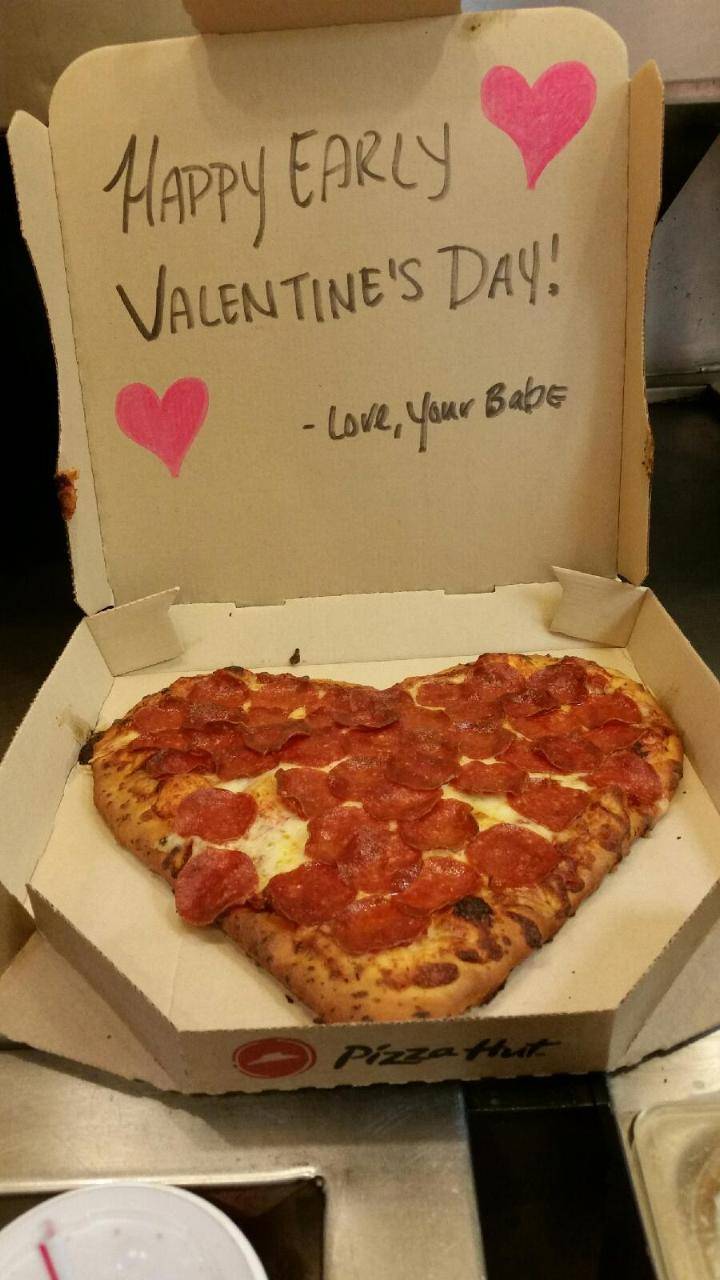 HAPPY EARLY
VALENTINE'S DAY!
- Love, Your Babe
Pizza Hut